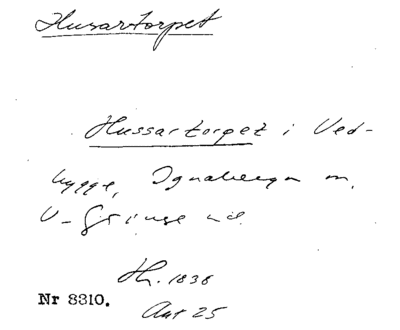 Husartorpet
Hussartorpet i Ved-
bygge, Ignaberga sn,
V-Göinge hd
Hf. 1838
Nr 8310.
Akt 25